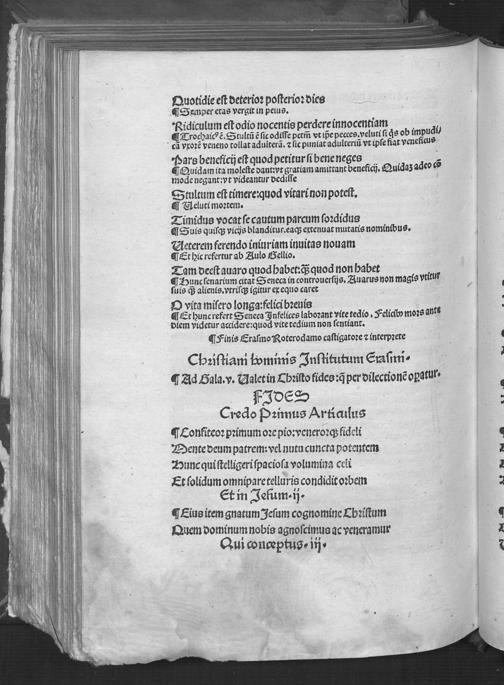 Quotidie est deterior posterior dies
¶ Semper etas vergit in peius.
Ridiculum est odio nocentis perdere innocentiam
¶ Trochaic⁹ ē. Stultū ē sic odisse petm̄ vt ip̄e pecces. veluti si q̄s ob impudi/
cā vxorē veneno tollat adulterā. ⁊ sic puniat adulteriū vt ip̄e fiat veneficus
Pars beneficij est quod petitur si bene neges
¶ Quidam ita moleste dant: vt gratiam amittant beneficij. Quidaz adeo cō
mode negant: vt videantur dedisse
Stultum est timere: quod vitari non potest.
¶ Veluti mortem.
Timidus vocat se cautum parcum sordidus
¶ Suis quisqꝫ vicijs blanditur. eaqꝫ extenuat mutatis nominibus.
Veterem ferendo iniuriam inuitas nouam
¶ Et hic refertur ab Aulo Gellio.
Tam deest auaro quod habet: q̄ꝫ quod non habet
¶ Hunc senarium citat Seneca in controuersijs. Auarus non magis vtitur
suis q̄ꝫ alienis. vtrisqꝫ igitur ex equo caret
O vita misero longa: felici breuis
¶ Et hunc refert Seneca Infelices laborant vite tedio. Felicibus mors ante
diem videtur accidere: quod vite tedium non sentiant.
¶ Finis Erasmo Roterodamo castigatore ⁊ interprete
Christiani hominis Institutum Erasmi.
¶ Ad Gala. v. Valet in Christo fides: q̄ per dilectionē operatur.
FIDES
Credo Primus Articulus
¶ Confiteor primum ore pio: venerorqꝫ fideli
Mente deum patrem: vel nutu cuncta potentem
Hunc qui stelligeri spaciosa volumina celi
Et solidum omnipare telluris condidit orbem
Et in Jesum. ij.
¶ Eius item gnatum Jesum cognomine Christum
Quem dominum nobis agnoscimus ac veneramur
Qui conceptus. iij.